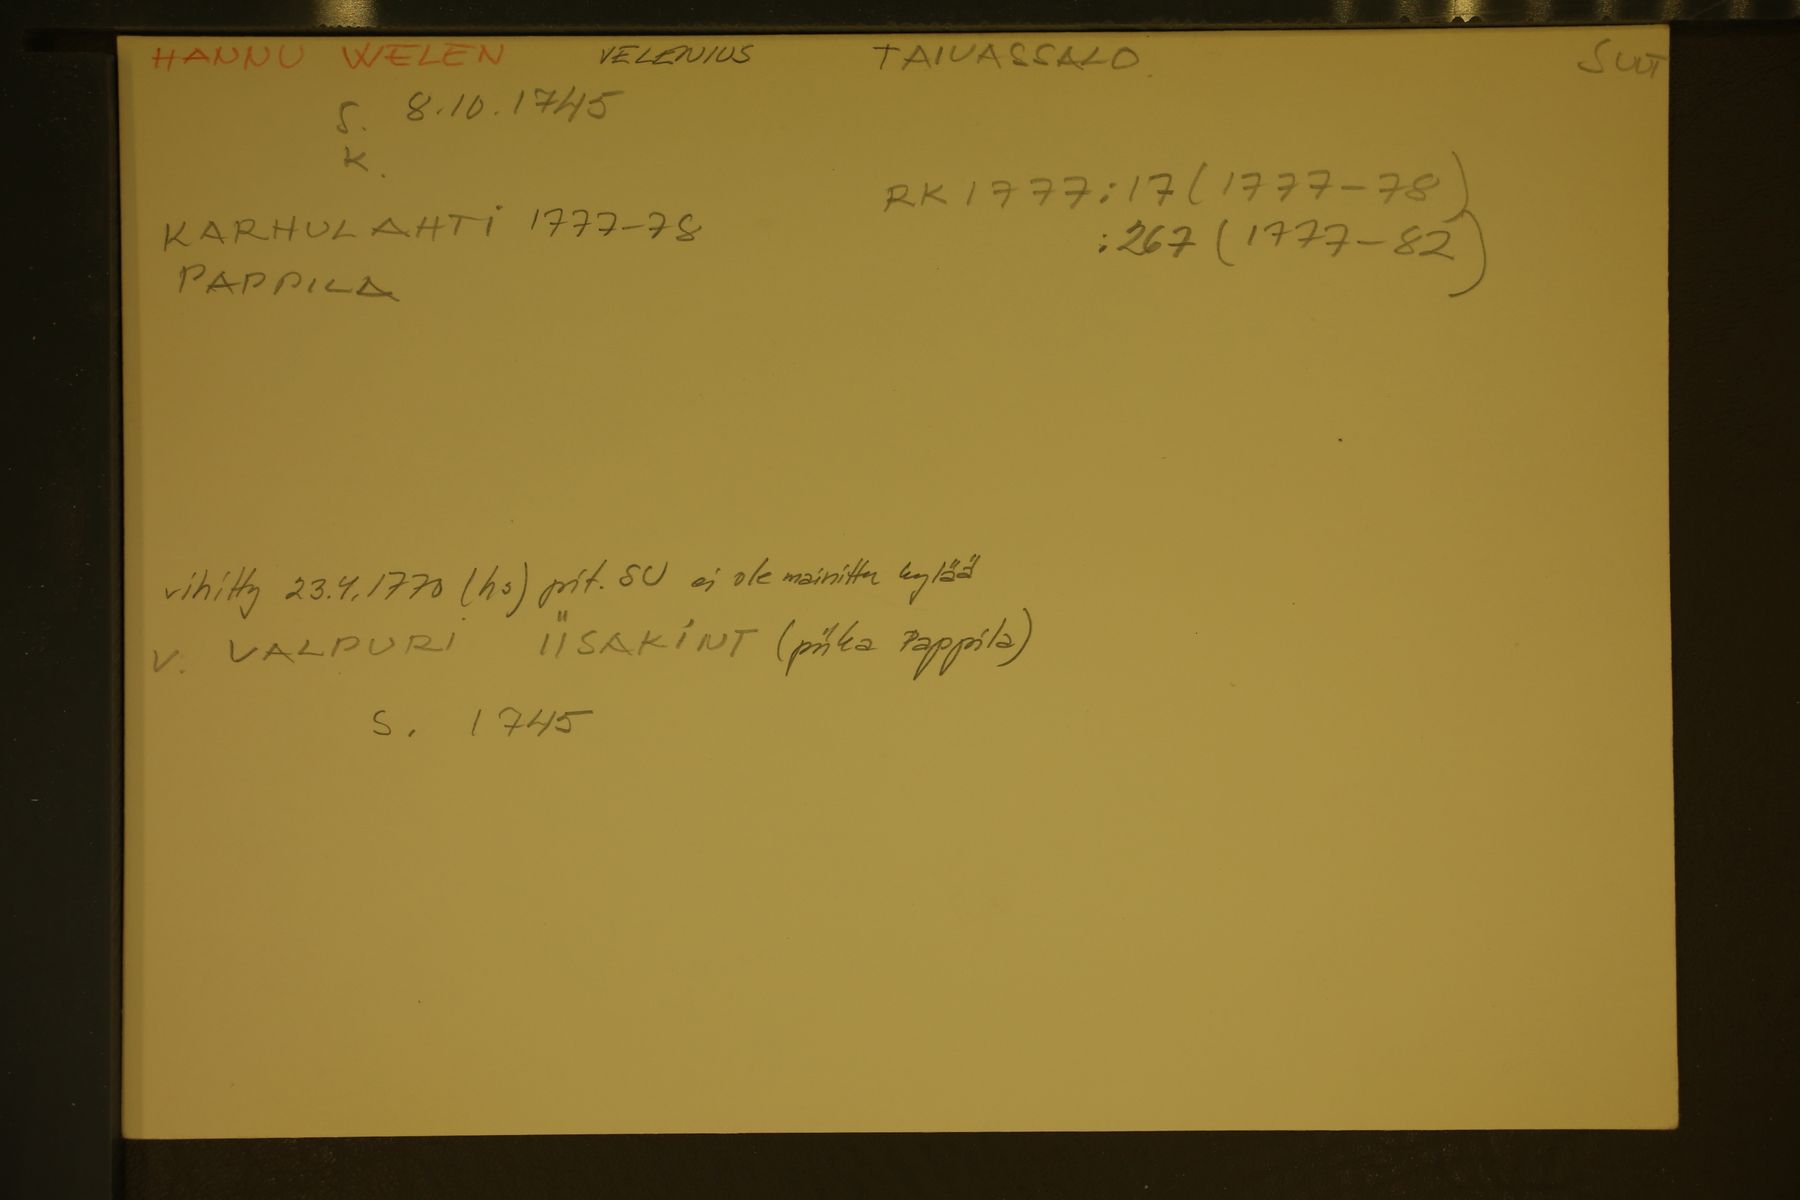 HANNU WELEN VELENIUS TAIVASSALO. SUUT
S. 8.10.1745
K.
KARHULAHTI 1777-78 RK 1777:17 (1777-78)
PAPPILA :267 (1777-82)
vihitty 23.4.1770 (hs) pit. SU ei ole mainittu kylää
V. VALPURI IISAKINT (piika Pappila)
S. 1745